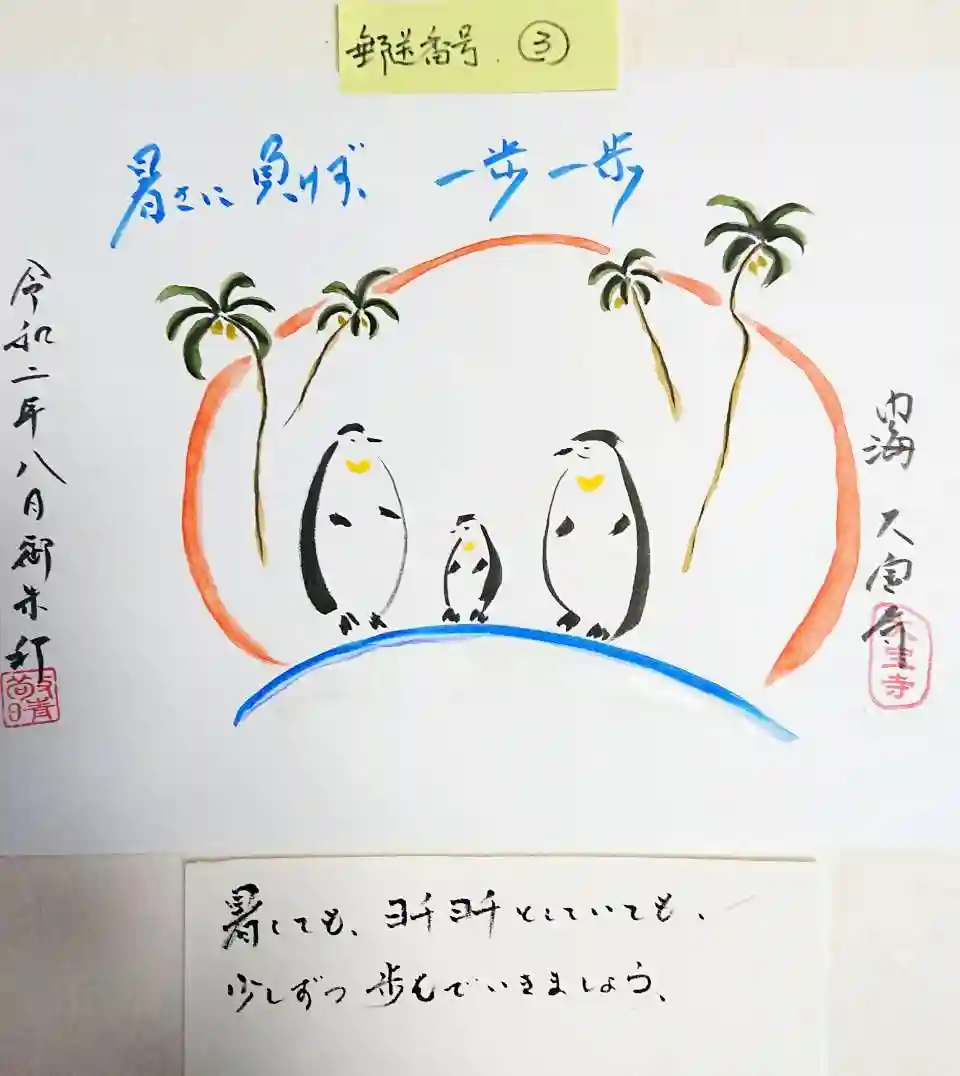 郵送番号 ③
暑さに負けず、一歩一歩
令和二年八月御朱印
内海 大宝寺
大宝寺
暑くても、ヨチヨチとしていても、
少しずつ歩んでいきましょう、